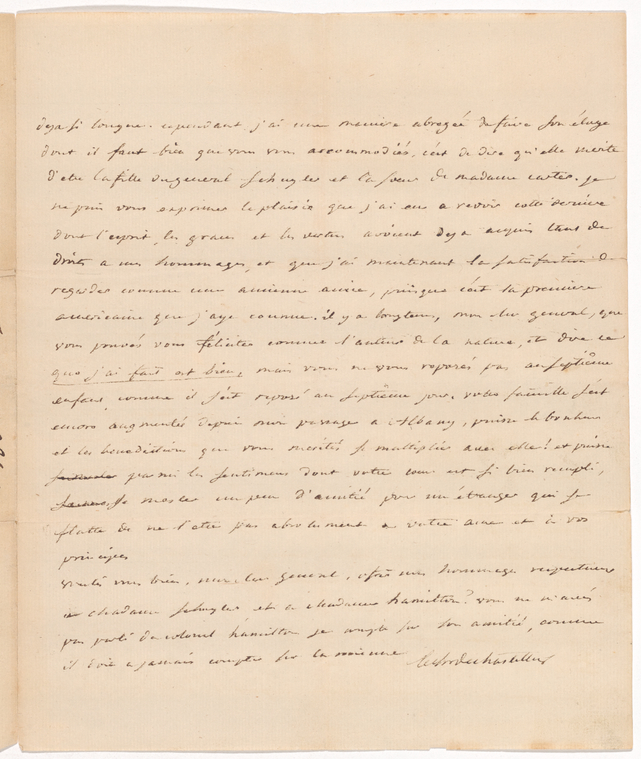 deja si longue. cependant j'ai une maniere abregée de faire son éloge
dont il faut bien que vous vous accommodiés, c'est de dire qu'elle merite
d'etre la fille du general Schuyler et la soeur de madame carter. je
ne puis vous exprimer le plaisir que j'ai eu a revoir cette derniere
dont l'esprit, les graces et les vertus avoient deja acquis tant de
droits a mes hommages, et que j'ai maintenant la satisfaction de
regarder comme une ancienne amie, puisque c'est la premiere
americaine que j'aye connue. il y a longtems, mon cher general, que
vous pouvés vous féliciter comme l'auteur de la nature, et dire ce
que j'ai fait est bien, mais vous ne vous reposés pas au septième
enfant, comme il s'est reposé au septième jour. votre famille s'est
encore augmentée depuis mon passage a Albany, puisse le bonheur
et les benedictions que vous merités se multiplier avec elle! et puisse
parmi les sentimens dont votre coeur est si bien rempli,
se mesler un peu d'amitié pour un étranger qui se
flatte de ne l'etre pas absolument a votre ame et à vos
principes
voulés vous bien, mon cher general, offrir mes hommages respectueux
a Madame Schuyler et a Madame hamilton? vous ne m'avés
pas parlé du colonel hamilton je compte sur son amitié, comme
il doit a jamais compter sur la mienne le chr de chastellux